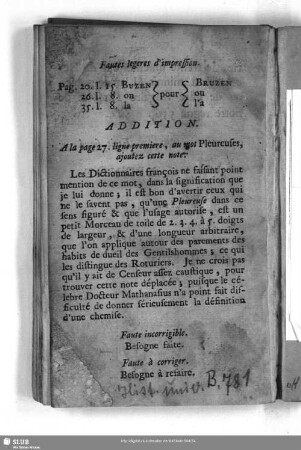 Fautes legeres d'impression.
Pag. 20. l. 15. BUZEN } pour { BRUZEN
26. l. 8. on } pour { ou
35. l. 8. la } pour { l'à
ADDITION.
A la page 27. ligne premiere, au mot Pleureuses,
ajoutez cette note:
Les Dictionnaires françois ne faisant point
mention de ce mot, dans la signification que
je lui donne; il est bon d'avertir ceux qui
ne le savent pas, qu'une Pleureuse dans ce
sens figuré & que l'usage autorise, est un
petit Morceau de toile de 2. 3. 4. à 5. doigts
de largeur, & d'une longueur arbitraire,
que l'on applique autour des parements des
habits de dueil des Gentilshommes; ce qui
les distingue des Roturiers. Je ne crois pas
qu'il y ait de Censeur assez caustique, pour
trouver cette note déplacée; puisque le cé-
lebre Docteur Mathanasius n'a point fait dif-
ficulté de donner sérieusement la définition
d'une chemise.
Faute incorrigible.
Besogne faite.
Faute à corriger.
Besogne à refaire.
Hist. univ. B. 781
SLUB